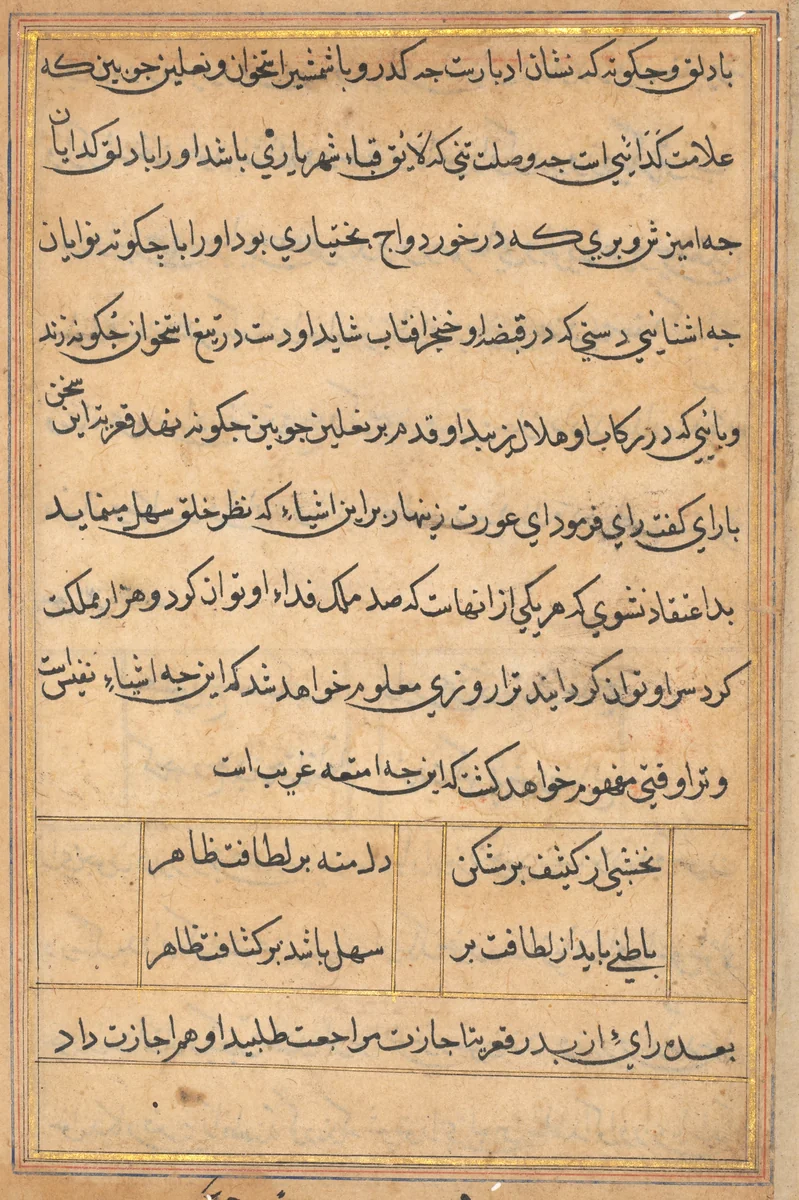 با دلق و جکونه که نشان ادبارست جه کدر و با شمشیر استخوان و نعلین جوبین که
علامت کَدَائیی است جه وصلت تنی که لائق قباء شهریاریْ باشد او را با دلق کدایان
جه امیزش و بری که در خور دواج بختیاری بود او را با چکونه نوایان
جه اشنایی دستی که در قبضه او خنجر افتاب شاید او دست در تیغ استخوان جُکونه زند
و پائیی که در رکاب او هلال زیبد او قدم بر نعلین جوبین جکونه نهد قعربته این سخن
با رای کفت رای فرمود ای عورت زینهار براین اشیاء که نظر خلق سهل مینماید
بد اعتقاد نشوی که هر یکی از انهاست که صد ملک فداء او توان کرد و هزار مملکت
کرد سر او توان کردانید ترا روزی معلوم خواهد شد که این جه اشیاءِ نفیس است
و ترا وقتی مفهوم خواهد کشت که این جه امتعه غریب است
نخشبی از کثیف بر مشکن دل منه بر لطافت ظاهر
باطنی باید از لطافت بر سهل باشد بر کثافت ظاهر
بعده رایءِ از بدر قعربتا جازت مراجعت طلبید او هم اجازت داد